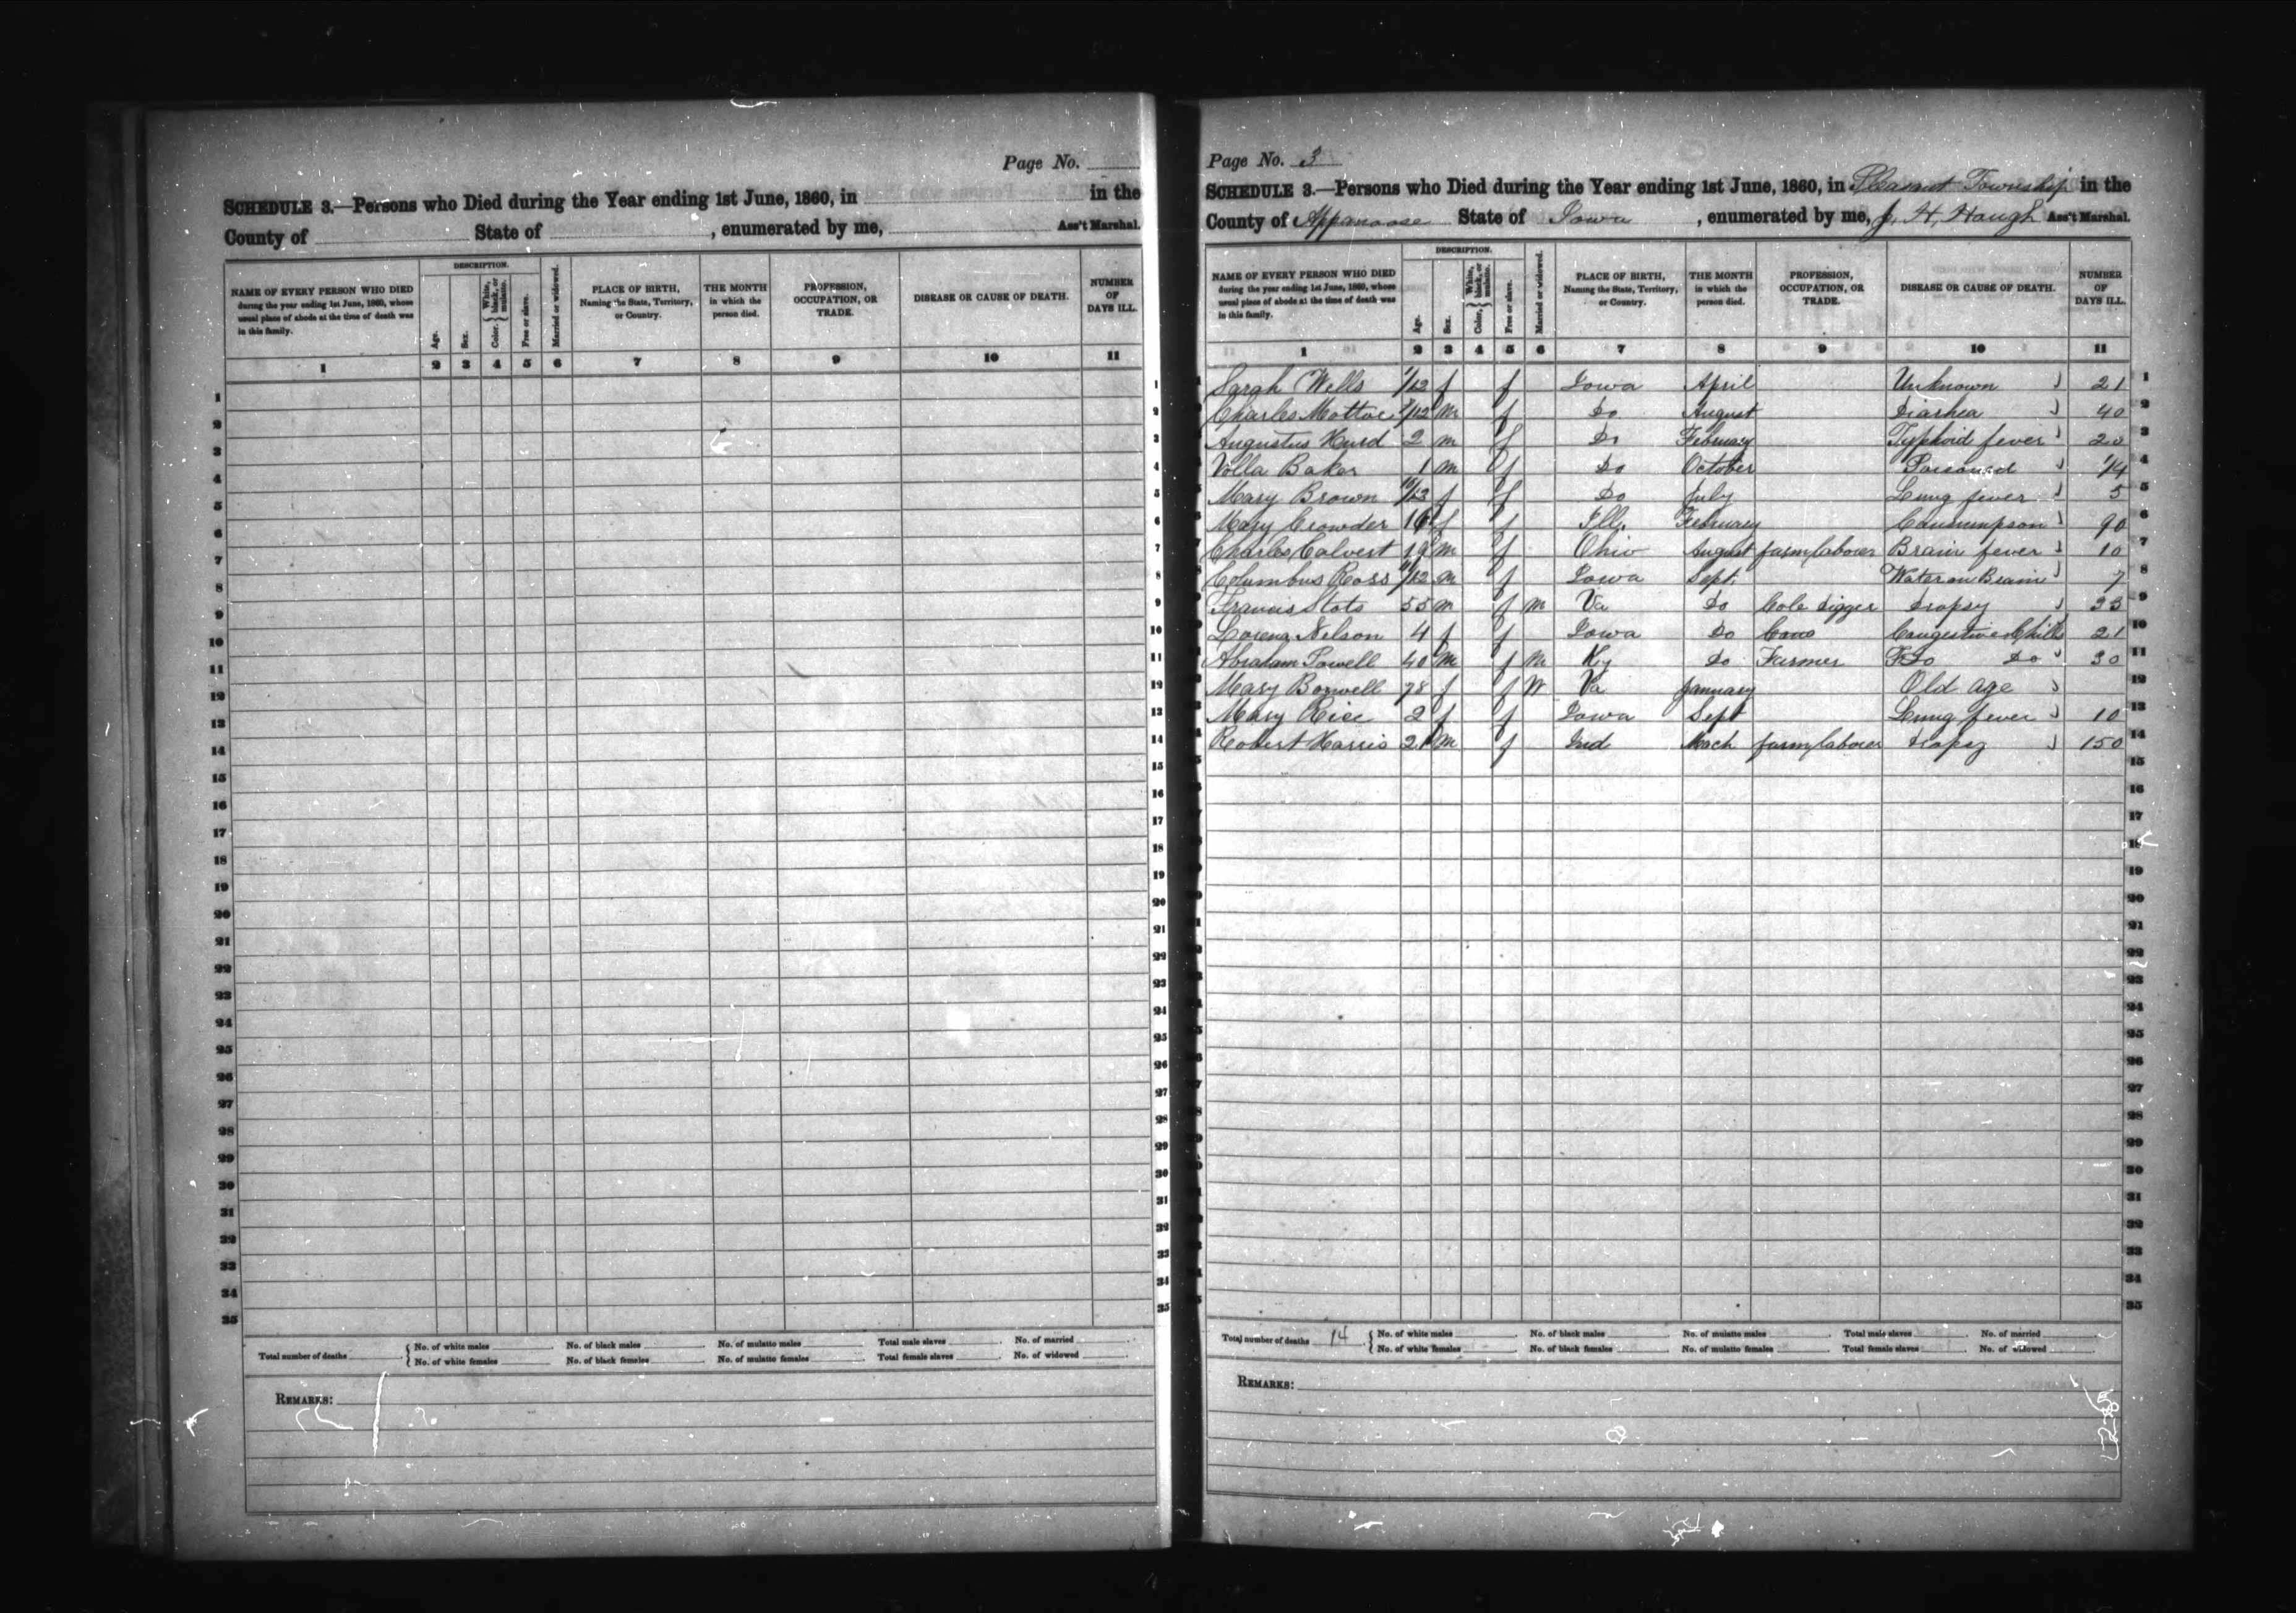 Page No.
SCHEDULE 3.—Persons who Died during the Year ending 1st June, 1860, in in the
County of State of , enumerated by me, Ass't Marshal.
NAME OF EVERY PERSON WHO DIED during the year ending 1st June, 1860, whose usual place of abode at the time of death was in this family.
DESCRIPTION.
Age.
Sex.
Color, { White, black, or mulatto.
Free or slave.
Married or widowed.
PLACE OF BIRTH, Naming the State, Territory, or Country.
THE MONTH in which the person died.
PROFESSION, OCCUPATION, OR TRADE.
DISEASE OR CAUSE OF DEATH.
NUMBER OF DAYS ILL.
1 2 3 4 5 6 7 8 9 10 11
1
2
3
4
5
6
7
8
9
10
11
12
13
14
15
16
17
18
19
20
21
22
23
24
25
26
27
28
29
30
31
32
33
34
35
Total number of deaths { No. of white males No. of black males No. of mulatto males Total male slaves No. of married
No. of white females No. of black females No. of mulatto females Total female slaves No. of widowed
REMARKS:
Page No. 3
SCHEDULE 3.—Persons who Died during the Year ending 1st June, 1860, in Pleasant Township in the
County of Appanoose State of Iowa , enumerated by me, J. H. Haugh Ass't Marshal.
NAME OF EVERY PERSON WHO DIED during the year ending 1st June, 1860, whose usual place of abode at the time of death was in this family.
DESCRIPTION.
Age.
Sex.
Color, { White, black, or mulatto.
Free or slave.
Married or widowed.
PLACE OF BIRTH, Naming the State, Territory, or Country.
THE MONTH in which the person died.
PROFESSION, OCCUPATION, OR TRADE.
DISEASE OR CAUSE OF DEATH.
NUMBER OF DAYS ILL.
1 2 3 4 5 6 7 8 9 10 11
Sarah Wells 1/12 f f Iowa April Unknown 21 1
Charles /12 m f Do August Diarhea 40 2
Augustus Hurd 2 m f Do February Typhoid fever 20 3
Volla Baker 1 m f Do October Poisoned 1/4 4
Mary Brown /12 f f Do July Lung fever 5 5
Mary Crowder 16 f f Ill. February Consumpson 90 6
Charles Calvert 19 m f Ohio August farm laborer Brain fever 10 7
Columbus Ross /12 m f Iowa Sept. Water on Brain 7 8
Francis Stots 55 m f m Va Do Cole digger Dropsy 33 9
Lorena Nelson 4 f f Iowa Do Congestive Chills 21 10
Abraham Powell 40 m f m Ky Do Farmer Do Do 30 11
Mary Boswell 78 f f W Va January Old age 12
Mary Rice 2 f f Iowa Sept Lung fever 10 13
Robert Harris 21 m f Ind March farm laborer dropsy 150 14
15
16
17
18
19
20
21
22
23
24
25
26
27
28
29
30
31
32
33
34
35
Total number of deaths 14 { No. of white males No. of black males No. of mulatto males Total male slaves No. of married
No. of white females No. of black females No. of mulatto females Total female slaves No. of widowed
REMARKS: